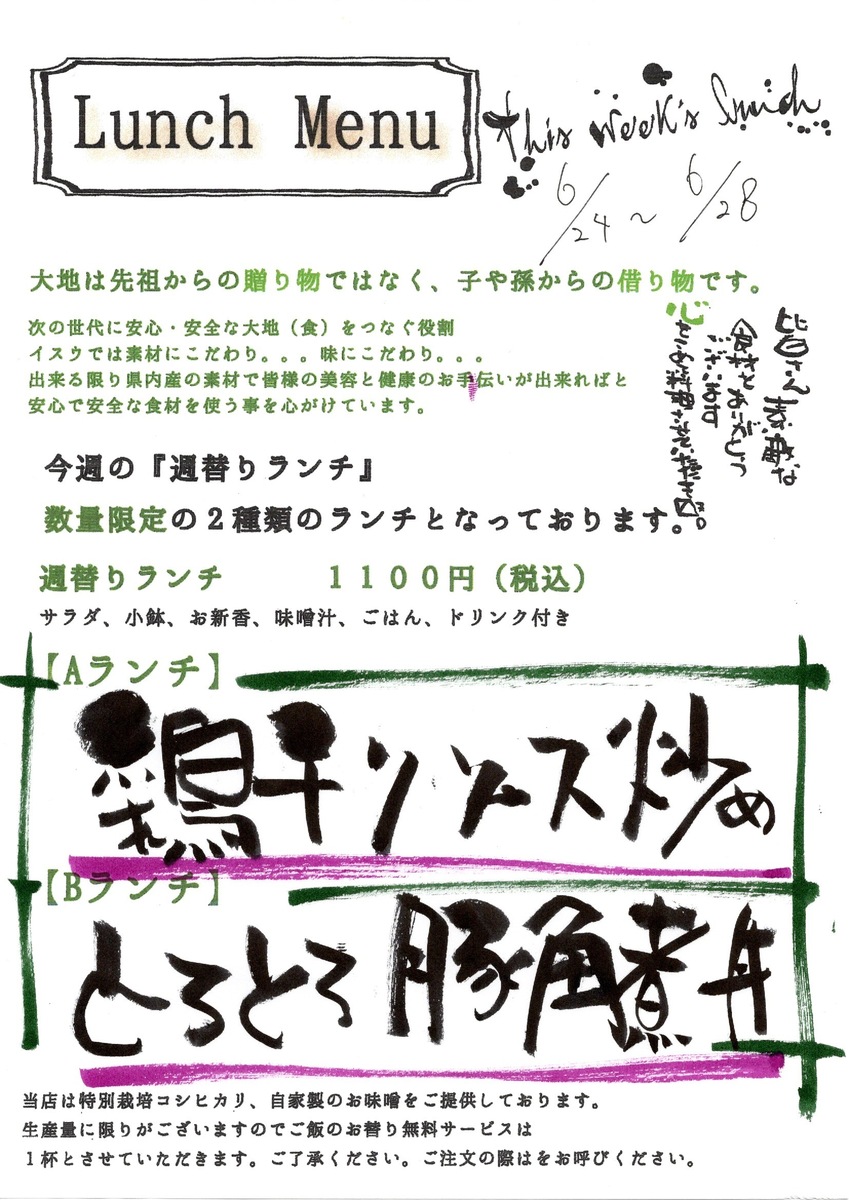 Lunch Menu
This week's lunch
6/24～6/28
大地は先祖からの贈り物ではなく、子や孫からの借り物です。
次の世代に安心・安全な大地（食）をつなぐ役割
イスウでは素材にこだわり。。。味にこだわり。。。
出来る限り県内産の素材で皆様の美容と健康のお手伝いが出来ればと
安心で安全な食材を使う事を心がけています。
皆さん素敵な
食材をありがとう
ございます
心
をこめ料理させていただき
今週の『週替りランチ』
数量限定の２種類のランチとなっております。
週替りランチ　　　１１００円（税込）
サラダ、小鉢、お新香、味噌汁、ごはん、ドリンク付き
【Aランチ】
鶏チリソース炒め
【Bランチ】
とろとろ豚角煮丼
当店は特別栽培コシヒカリ、自家製のお味噌をご提供しております。
生産量に限りがございますのでご飯のお替り無料サービスは
１杯とさせていただきます。ご了承ください。ご注文の際はをお呼びください。